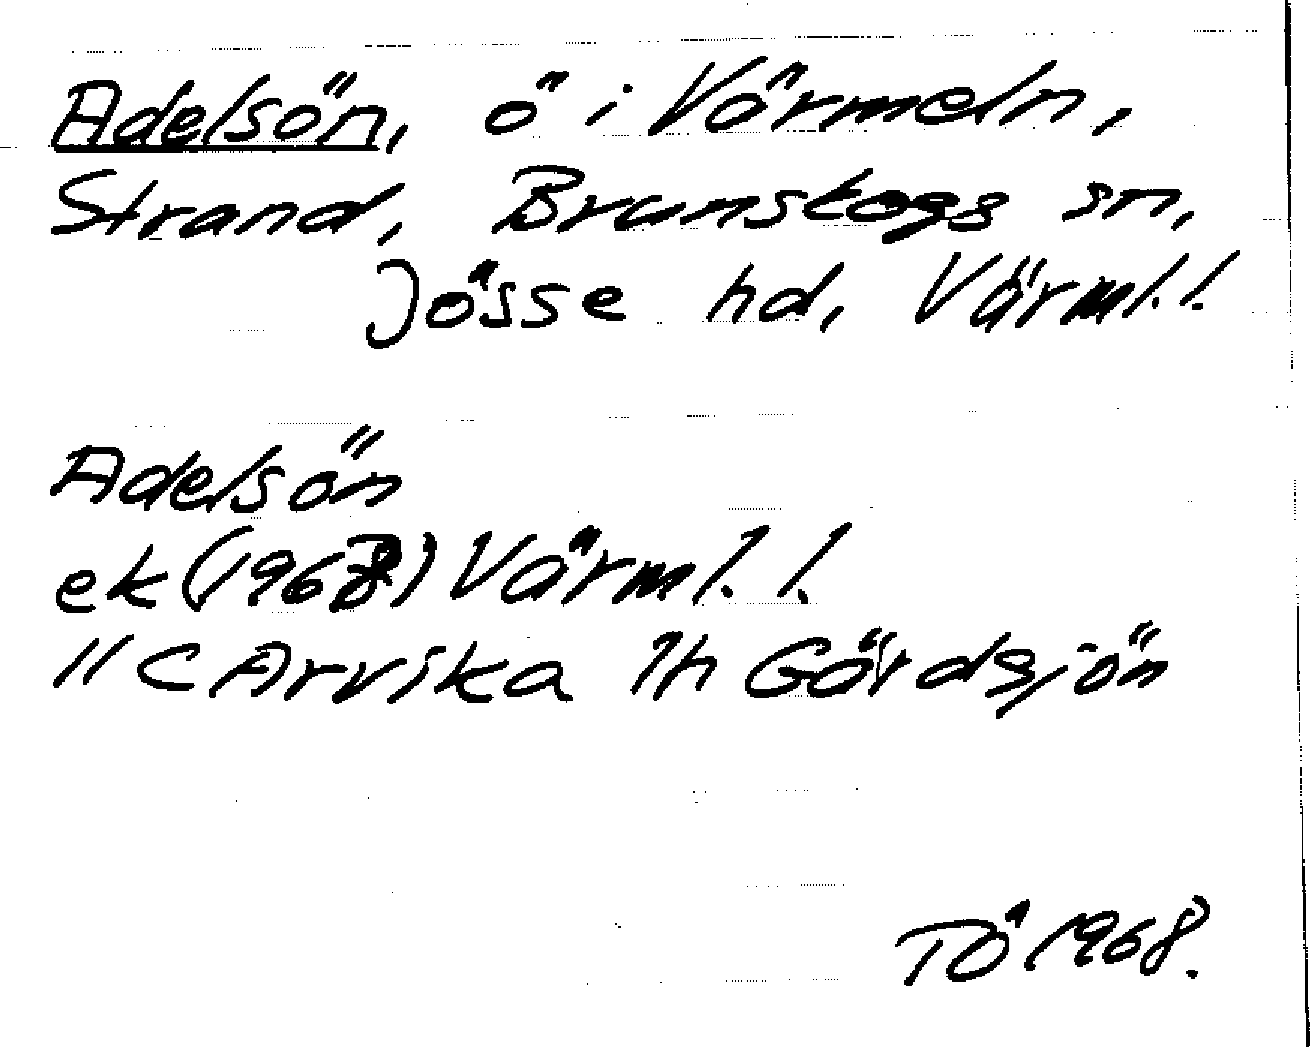 Adelsön, ö i Värmeln,
Strand, Brunskogs sn,
Jösse hd, Värml. l.
Adelsön
ek (1968) Värml. l.
11 C Arvika 1h Gärdsjön
TÖ 1968.